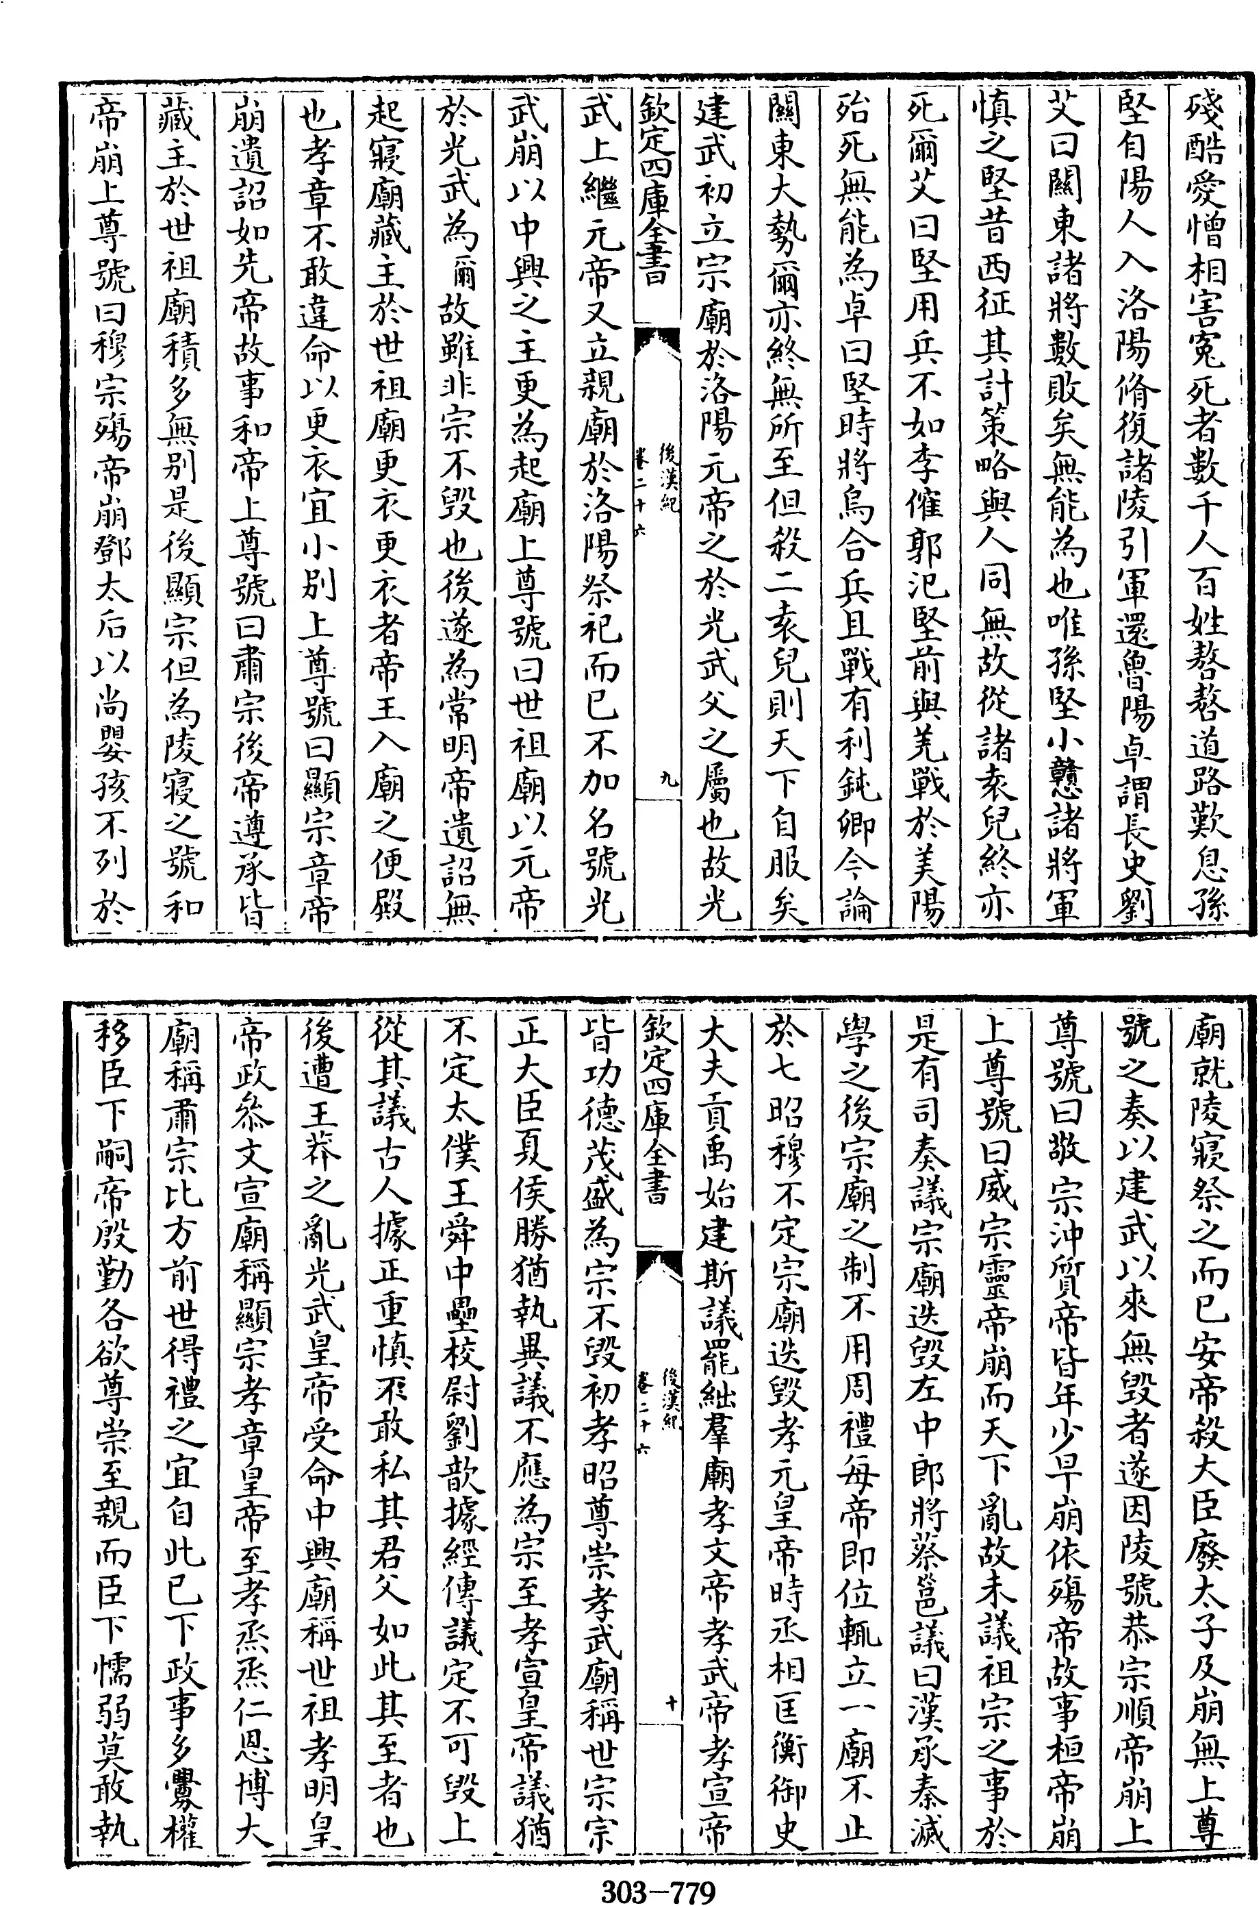 殘酷愛憎相害寃死者數千人百姓嗸嗸道路歎息孫
堅自陽人入洛陽脩復諸陵引軍還魯陽卓謂長史劉
艾曰關東諸將數敗矣無能為也唯孫堅小戇諸將軍
慎之堅昔西征其計策略與人同無故從諸袁兒終亦
死爾艾曰堅用兵不如李傕郭汜堅前與羌戰於美陽
殆死無能為卓曰堅時將烏合兵且戰有利鈍卿今論
關東大勢爾亦終無所至但殺二袁兒則天下自服矣
建武初立宗廟於洛陽元帝之於光武父之屬也故光
欽定四庫全書
後漢紀
卷二十六
九
武上繼元帝又立親廟於洛陽祭祀而已不加名號光
武崩以中興之主更為起廟上尊號曰世祖廟以元帝
於光武為爾故雖非宗不毀也後遂為常明帝遺詔無
起寢廟藏主於世祖廟更衣更衣者帝王入廟之便殿
也孝章不敢違命以更衣宜小別上尊號曰顯宗章帝
崩遺詔如先帝故事和帝上尊號曰肅宗後帝遵承皆
藏主於世祖廟積多無別是後顯宗但為陵寢之號和
帝崩上尊號曰穆宗殤帝崩鄧太后以尚嬰孩不列於
廟就陵寢祭之而已安帝殺大臣廢太子及崩無上尊
號之奏以建武以來無毀者遂因陵號恭宗順帝崩上
尊號曰敬宗沖質帝皆年少早崩依殤帝故事桓帝崩
上尊號曰威宗靈帝崩而天下亂故未議祖宗之事於
是有司奏議宗廟迭毀左中郎將蔡邕議曰漢承秦滅
學之後宗廟之制不用周禮每帝即位輒立一廟不止
於七昭穆不定宗廟迭毀孝元皇帝時丞相匡衡御史
大夫貢禹始建斯議罷絀羣廟孝文帝孝武帝孝宣帝
欽定四庫全書
後漢紀
卷二十六
十
皆功德茂盛為宗不毀初孝昭尊崇孝武廟稱世宗宗
正大臣夏侯勝猶執異議不應為宗至孝宣皇帝議猶
不定太僕王舜中壘校尉劉歆據經傳議定不可毀上
從其議古人據正重慎不敢私其君父如此其至者也
後遭王莽之亂光武皇帝受命中興廟稱世祖孝明皇
帝政叅文宣廟稱顯宗孝章皇帝至孝烝烝仁恩博大
廟稱肅宗比方前世得禮之宜自此已下政事多釁權
移臣下嗣帝殷勤各欲尊崇至親而臣下懦弱莫敢執
303-779